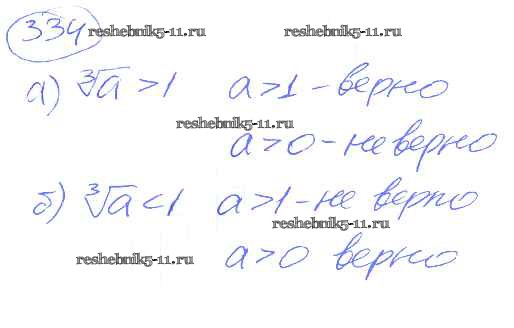 334 reshebnik5-11.ru reshebnik5-11.ru
а) ∛a > 1 a > 1 - верно
reshebnik5-11.ru
a > 0 - не верно
б) ∛a < 1 a > 1 - не верно
reshebnik5-11.ru
reshebnik5-11.ru a > 0 верно